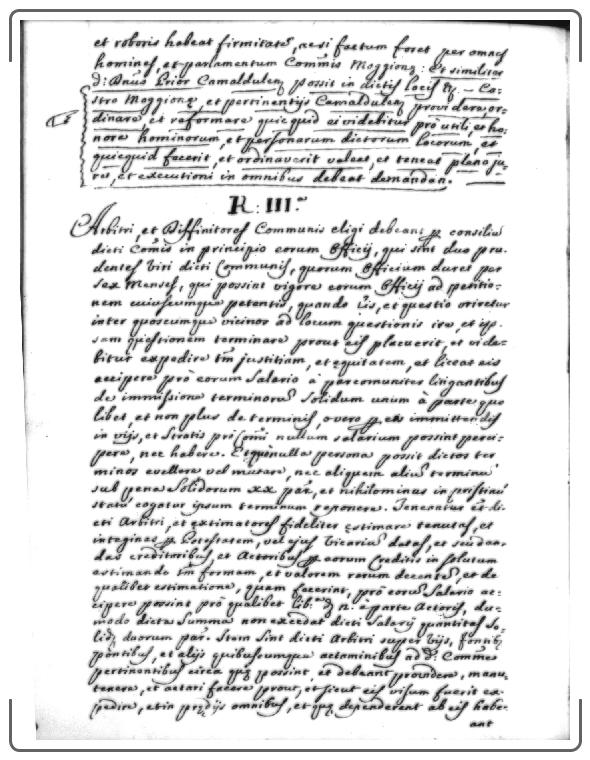 et roboris habeat firmitatẽ, ac si factum foret per omnes
homines, et parlamentum Com̃nis Moggionæ: Et similiter
d: Dñus Prior Camaldulen̄ possit in dictis locis - Ca=
stro Moggionæ, et pertinentijs Camaldulen̄ providere, or=
dinare et reformare quicquid ei videbitur prò utili, et ho=
nore hominorum, et personarum dictorum locorum, et
quicquid fecerit, et ordinaverit valeat, et teneat pleno ju=
re, et executioni in omnibus debeat demandari.
R: III.ª
Arbitri, et Diffinitores Communis eligi debeant p̱ consiliũ
dicti Com̃is in principio eorum Officij, qui sint duo pru=
dentes Viri dicti Communis, quorum Officium duret per
sex Menses, qui possint vigore eorum Officij ad petitio=
nem cuiuscumque petentis, quando lis, et questio oriretur
inter quoscumque vicinos ad locum questionis ire, et ip=
sam questionem terminare prout eis placuerit, et vide=
bitur expedire tm̃ justitiam, et equitatem, et liceat eis
accipere prò eorum salario à parcomuniter litigantibus
de immissione terminorũ solidum unum à parte quo
libet, et non plus de terminis, overo p̱ eos immittendis
in vijs, et stratis prò Com̃i nullum salarium possint perci=
pere, nec habere. Et quẽ nulla persona possit dictos ter
minos evellere vel mutare, nec aliquem aliũ terminũ
sub pena Solidorum xx par̃, et nihilominus in pristinũ
statũ cogatur ipsum terminum reponere. Teneantur et di=
cti Arbitri, et extimatores fideliter estimare tenutas, et
integines p̱ Potestatem, vel ejus Vicariũ datas, et seu dan=
das creditoribus, et Actoribus p̱ eorum Creditis in solutum
estimando tm̃ formam, et valorem rerum decentẽ, et de
qualibet estimatione, quam fecerint, prò eorũ Salario ac=
cipere possint prò qualibet lib.ª ij n. à parte Actoris, du=
modo dicta Summa non excedat dicti Salarij quantitas so=
lid; duorum par̃. Item sint dicti Arbitri super Vijs, fontib;
pontibus, et alijs quibuscumque actaminibus ad d: Com̃e
pertinentibus circa quæ possint, et debeant providere, manu=
tenere, et actari facere prout, et sicut eis visum fuerit ex=
pedire, et in prædijs omnibus, et quæ dependerent ab eis habe=
ant